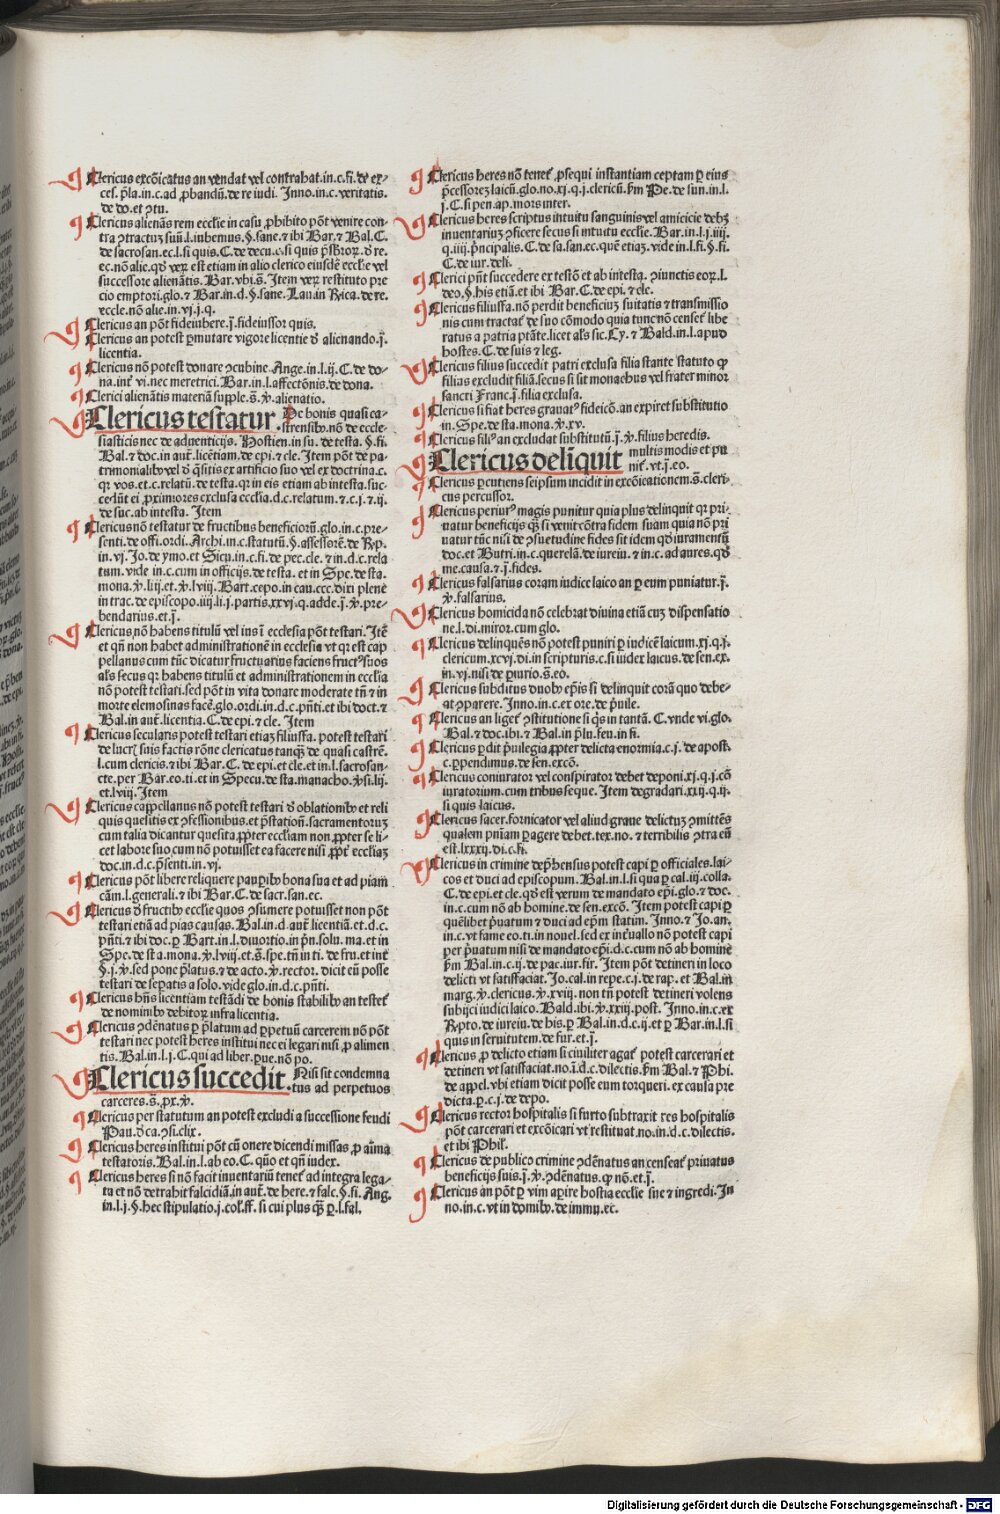 Clericus excõicatus an vendat vel contrahat.in.c.fi.de ex-
ces. p̃la.in.c.ad ꝓbandũ.de re iudi. Inno.in.c.veritatis.
de do.et ↄtu.
Clericus alienãs rem ecclie in casu ꝓhibito põt venire con-
tra ↄtractuz suũ.l.iubemus.§.sane.⁊ ibi Bar.⁊ Bal.C.
de sacrosan.ec.l.si quis.C.de decu.c.si quis p̃sbr̃oꝝ.ð re.
ec.nõ alie.qð veꝝ est etiam in alio clerico eiusdẽ ecclie vel
successore alienãtis.Bar.vbi.s̃. Item veꝝ restituto pre
cio emptori.glo.⁊ Bar.in.d.§.sane.Lau.in Rica.de re.
eccle.nõ alie.in.vj.j.q.
Clericus an põt fideiubere.j̃.fideiussor quis.
Clericus an potest ꝑmutare vigore licentie ð alienando.j̃.
licentia.
Clericus nõ potest donare ↄcubine.Ange.in.l.ij.C.de do-
na.int̃ vi.nec meretrici.Bar.in.l.affectõnis.de dona.
Clerici alienãtis materiã supple.s̃.℣.alienatio.
Clericus testatur. De bonis quasi ca-
strensib⁹.nõ de eccle-
siasticis nec de aduenticijs. Hostien.in su.de testa.§.fi.
Bal.⁊ doc.in aut̃.licẽtiam.de epi.⁊ cle. Item põt de pa-
trimonialib⁹ vel ð q̃sitis ex artificio suo vel ex doctrina.c.
qꝛ vos.et.c.relatũ.de testa.qꝛ in eis etiam ab intesta.suc-
cedũt ei ꝓximiores exclusa ecclia.d.c.relatum.⁊.c.j.⁊.ij.
de suc.ab intesta. Item
Clericus nõ testatur de fructibus beneficioꝝ.glo.in.c.pre-
senti.de offi.ordi.Archi.in.c.statutũ.§.assessorẽ.de Rp̃.
in.vj.Jo.de ymo.et Sicu.in.c.fi.de pec.cle.⁊ in.d.c.rela
tum.vide in.c.cum in officijs.de testa. et in Spe.de sta.
mona.℣.lij.et.℣.lviij.Bart.cepo.in cau.ccc.dixi plene
in trac.de episcopo.iiij.li.j.partis.xxvj.q.adde.j̃.℣.pre-
bendarius.et.j̃.
Clericus nõ habens titulũ vel ius ĩ ecclesia põt testari. Itẽ
et qñ non habet administrationẽ in ecclesia vt qꝛ est cap
pellanus cum tũc dicatur fructuarius faciens fruct⁹ suos
als̃ secus qꝛ habens titulũ et administrationem in ecclia
nõ potest testari.sed põt in vita donare moderate tñ ⁊ in
morte elemosinas facẽ.glo.ordi.in.d.c.pñti.et ibi doct.⁊
Bal.in aut̃.licentia.C.de epi.⁊ cle. Item
Clericus secularis potest testari etiaz filiusfa.potest testari
de lucrꝭ suis factis rõne clericatus tanqȝ̃ de quasi castrẽ.
l.cum clericis.⁊ ibi Bar.C.de epi.et cle.et in.l.sacrosan-
cte.per Bar.eo.ti.et in Specu.de sta.monacho.℣si.lij.
et.lviij. Item
Clericus cappellanus nõ potest testari ð oblationib⁹ et reli
quis quesitis ex ↄfessionibus.et p̃stationĩ.sacramentoruz
cum talia dicantur quesita ꝓpter eccliam non ꝓpter se li-
cet labore suo cum nõ potuisset ea facere nisi ꝓpt̃ eccliaz
doc.in.d.c.p̃senti.in.vj.
Clericus põt libere relinquere pauꝑib⁹ bona sua et ad piam
cãm.l.generali.⁊ ibi Bar.C.de sacr.san.ec.
Clericus ð fructib⁹ ecclie quos ↄsumere potuisset non põt
testari etiã ad pias causas.Bal.in.d.aut̃.licentiã.et.d.c.
pñti.⁊ ibi doc.ꝑ Bart.in.l.diuortio.in p̃n.solu.ma.et in
Spe.de sta.mona.℣.lviij.et.s̃.spe.tñ in ti.de fru.et int̃
§.j.℣.sed pone p̃latus.⁊.de acto.℣.rector. dicit eũ posse
testari de seꝑatis a solo.vide glo.in.d.c.pñti.
Clericus hñs licentiam testãdi de bonis stabilib⁹ an testet̃
de nominib⁹ debitoꝝ infra licentia.
Clericus ↄdẽnatus ꝑ p̃latum ad ꝑpetuũ carcerem nõ põt
testari nec potest heres institui nec ei legari nisi ꝓ alimen
tis.Bal.in.l.j.C.qui ad liber.ꝓue.nõ po.
Clericus succedit. Nisi sit condemna
tus ad perpetuos
carceres.s̃.ꝓx.℣.
Clericus per statutum an potest excludi a successione feudi
Pau.ð ca.ↄsi.clix.
Clericus heres institui põt cũ onere dicendi missas ꝓ aĩma
testatoris.Bal.in.l.ab eo.C.quõ et qñ iudex.
Clericus heres si nõ facit inuentariũ tenet̃ ad integra lega-
ta et nõ detrahit falcidiã.in aut̃.de here.⁊ falc.§.fi. Ang.
in.l.j.§.hec stipulatio.j.col̃.ff.si cui plus qȝ̃ ꝑ.l.fal.
Clericus heres nõ tenet̃ ꝓsequi instantiam ceptam ꝑ eius
p̃cessorez laicũ.glo.no.xj.q.j.clericũ.ẜm Pe.de sun.in.l.
j.C.si pen.ap.mors inter.
Clericus heres scriptus intuitu sanguinis vel amicicie debȝ
inuentariuz ↄficere secus si intuitu ecclie.Bar.in.l.j.iiij.
q.iiij.p̃ncipalis.C.de sa.san.ec.quẽ etiaz.vide in.l.fi.§.fi.
C.de iur.deli.
Clerici pñt succedere ex testõ et ab intesta. ↄiunctis eoꝝ.l.
deo.§.his etiã.et ibi Bar.C.de epi.⁊ cle.
Clericus filiusfa.nõ perdit beneficiuz suitatis ⁊ transmissio
nis cum tractat̃ de suo cõmodo quia tunc nõ censet̃ libe
ratus a patria ptãte.licet als̃ sic.Cy.⁊ Bald.in.l.apud
hostes.C.de suis ⁊ leg.
Clericus filius succedit patri exclusa filia stante statuto ꝙ
filias excludit filiã.secus si sit monachus vel frater minor
sancti Franc.j̃.filia exclusa.
Clericus si fiat heres grauat⁹ fideicõ.an expiret substitutio
in.Spe.de sta.mona.℣.xv.
Clericus fili⁹ an excludat substitutũ.j̃.℣.filius heredis.
Clericus deliñquit multis modis et pu
nit̃.vt.j̃.eo.
Clericus ꝑcutiens seipsum incidit in excõicationem.s̃.cleri-
cus percussor.
Clericus periur⁹ magis punitur quia plus delinquit qꝛ pri-
uatur beneficijs qȝ̃ si venit cõtra fidem suam quia nõ pri
uatur tũc nisi de ↄsuetudine fides sit idem qð iuramentũ
doc.et Butri.in.c.querelã.de iureiu.⁊ in.c.ad aures.qð
me.causa.⁊.j̃.fides.
Clericus falsarius coram iudice laico an ꝑ eum puniatur.j̃.
℣.falsarius.
Clericus homicida nõ celebrat diuina etiã cuz dispensatio
ne.l.di.miror.cum glo.
Clericus delinquẽs nõ potest puniri ꝑ iudicẽ laicum.xj.q.j.
clericum.xcvj.di.in scripturis.c.si iudex laicus.de sen.ex.
in.vj.nisi de ꝑiurio.s̃.eo.
Clericus subditus duob⁹ ep̃is si delinquit corã quo debe-
at ↄparere. Inno.in.c.ex ore.de p̃uile.
Clericus an liget̃ ↄstitutione si q̃s in tantã.C.vnde vi.glo.
Bal.⁊ doc.ibi.⁊ Bal.in p̃lu.feu.in fi.
Clericus ꝑdit p̃uilegia ꝓpter delicta enormia.c.j.de apost.
c.ꝑpendimus.de sen.excõ.
Clericus coniurator vel conspirator debet deponi.xj.q.j.cõ
iuratorium.cum tribus seque. Item degradari.xxij.q.ij.
si quis laicus.
Clericus sacer.fornicator vel aliud graue delictuz ↄmittẽs
qualem pñiam ꝑagere debet.tex.no.⁊ terribilis ↄtra eũ
est.lxxxij.di.c.fi.
Clericus in crimine dep̃hensus potest capi ꝑ officiales.lai-
cos et duci ad episcopum. Bal.in.l.si qua ꝑ cal.iij.colla.
C.de epi.et cle.qð est verum de mandato ep̃i.glo.⁊ doc.
in.c.cum nõ ab homine.de sen.excõ. Item potest capi ꝑ
quẽlibet p̃uatum ⁊ duci ad ep̃m statim. Inno.⁊ Jo.an.
in.c.vt fame eo.ti.in nouel.sed ex int̃uallo nõ potest capi
per p̃uatum nisi de mandato ep̃i.d.c.cum nõ ab homine
ẜm Bal.in.c.ij.de pac.iur.fir. Item põt detineri in loco
delicti vt satisfaciat.Jo.cal.in repe.c.j.de rap.et Bal.in
marg.℣.clericus.℣.xviij.non tñ potest detineri volens
subijci iudici laico. Bald.ibi.℣.xxiij.post. Inno.in.c.ex
Rp̃to.de iureiu.de his.ꝑ Bal.in.d.c.ij.et ꝑ Bar.in.l.si
quis in seruitutem.de fur.et.j̃.
Clericus ꝓ delicto etiam si ciuiliter agat̃ potest carcerari et
detineri vt satisfaciat.no.ĩ.d.c.dilectis.ẜm Bal.⁊ Phi.
de appel.vbi etiam dicit posse eum torqueri.ex causa pre
dicta.ꝑ.c.j.de depo.
Clericus rector hospitalis si furto subtraxit res hospitalis
põt carcerari et excõicari vt restituat.no.in.d.c.dilectis.
et ibi Phil̃.
Clericus de publico crimine ↄdẽnatus an censeat̃ priuatus
beneficijs suis.j̃.℣.ↄdẽnatus.ꝙ nõ.et.j̃.
Clericus an põt ꝑ vim aꝑire hostia ecclie sue ⁊ ingredi. In
no.in.c.vt in domib⁹.de immu.ec.
Digitalisierung gefördert durch die Deutsche Forschungsgemeinschaft - DFG